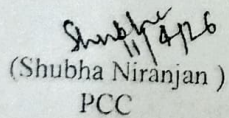 Shubha
11/4/26
(Shubha Niranjan )
PCC